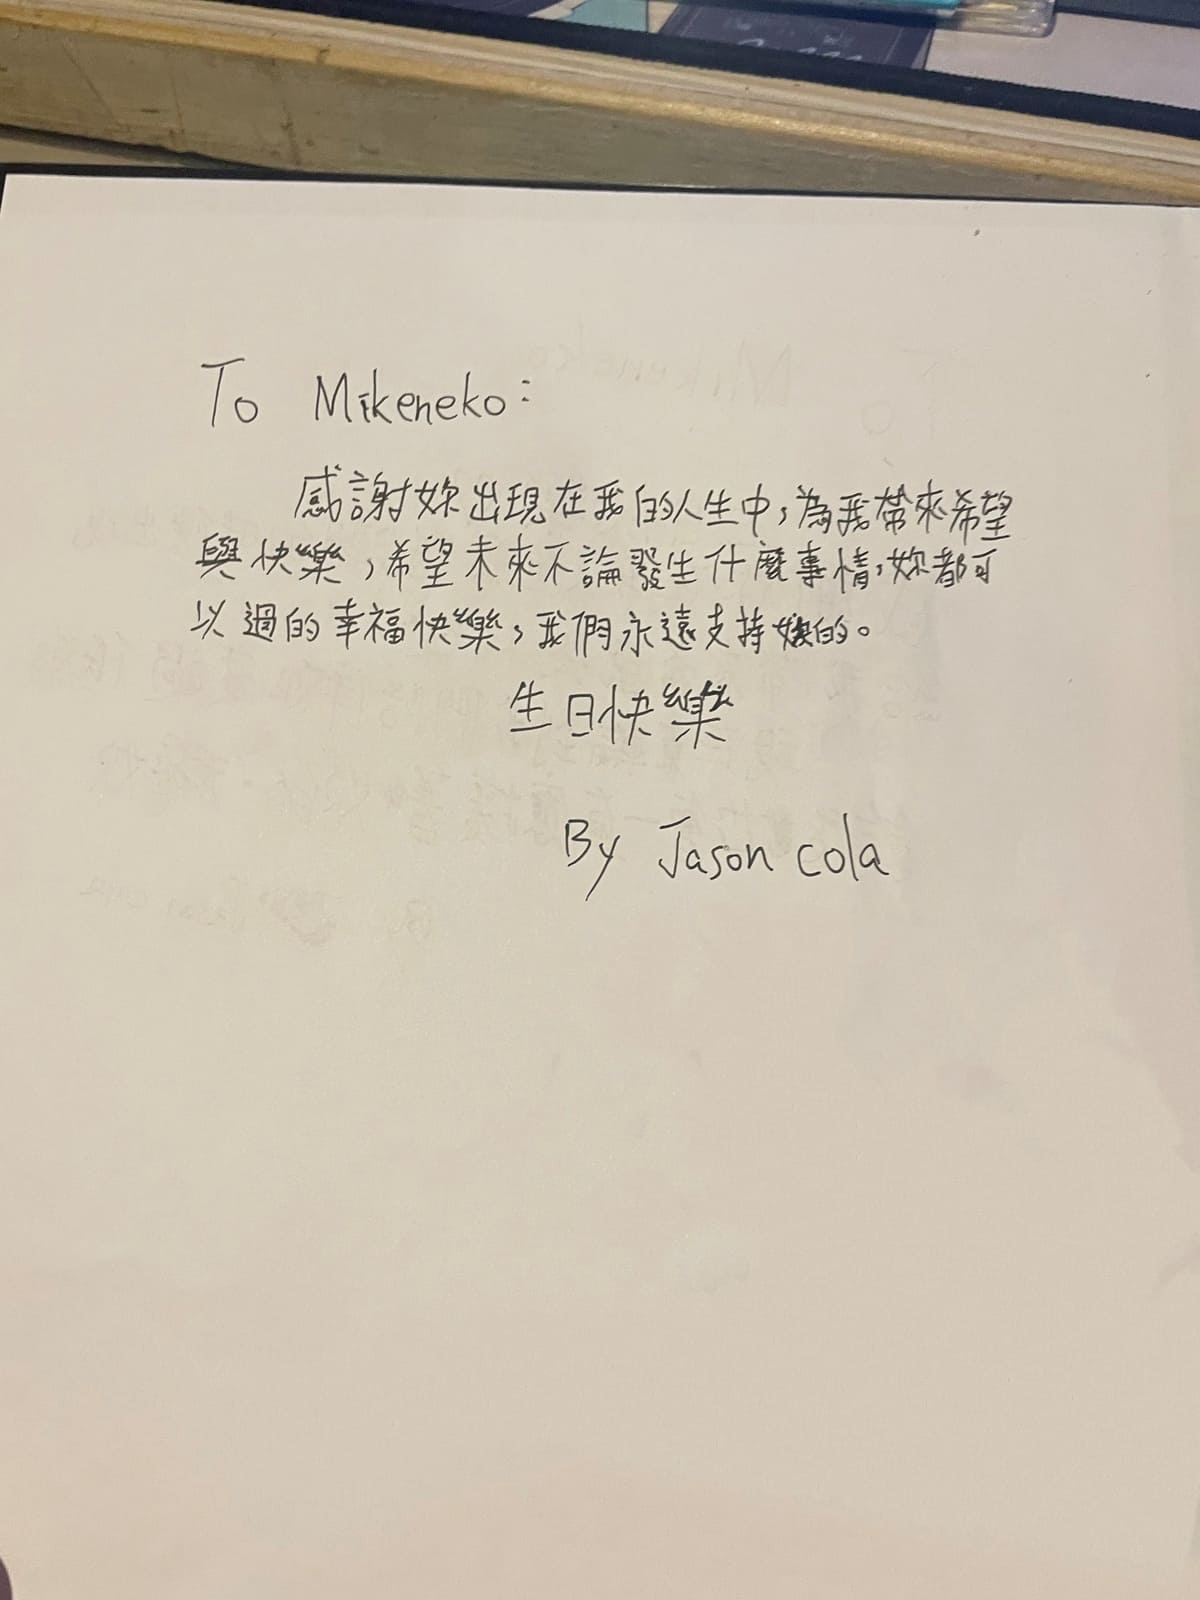 To Mikeneko:
感謝妳出現在我的人生中，為我帶來希望
與快樂，希望未來不論發生什麼事情，妳都可
以過的幸福快樂，我們永遠支持妳的。
生日快樂
By Jason cola